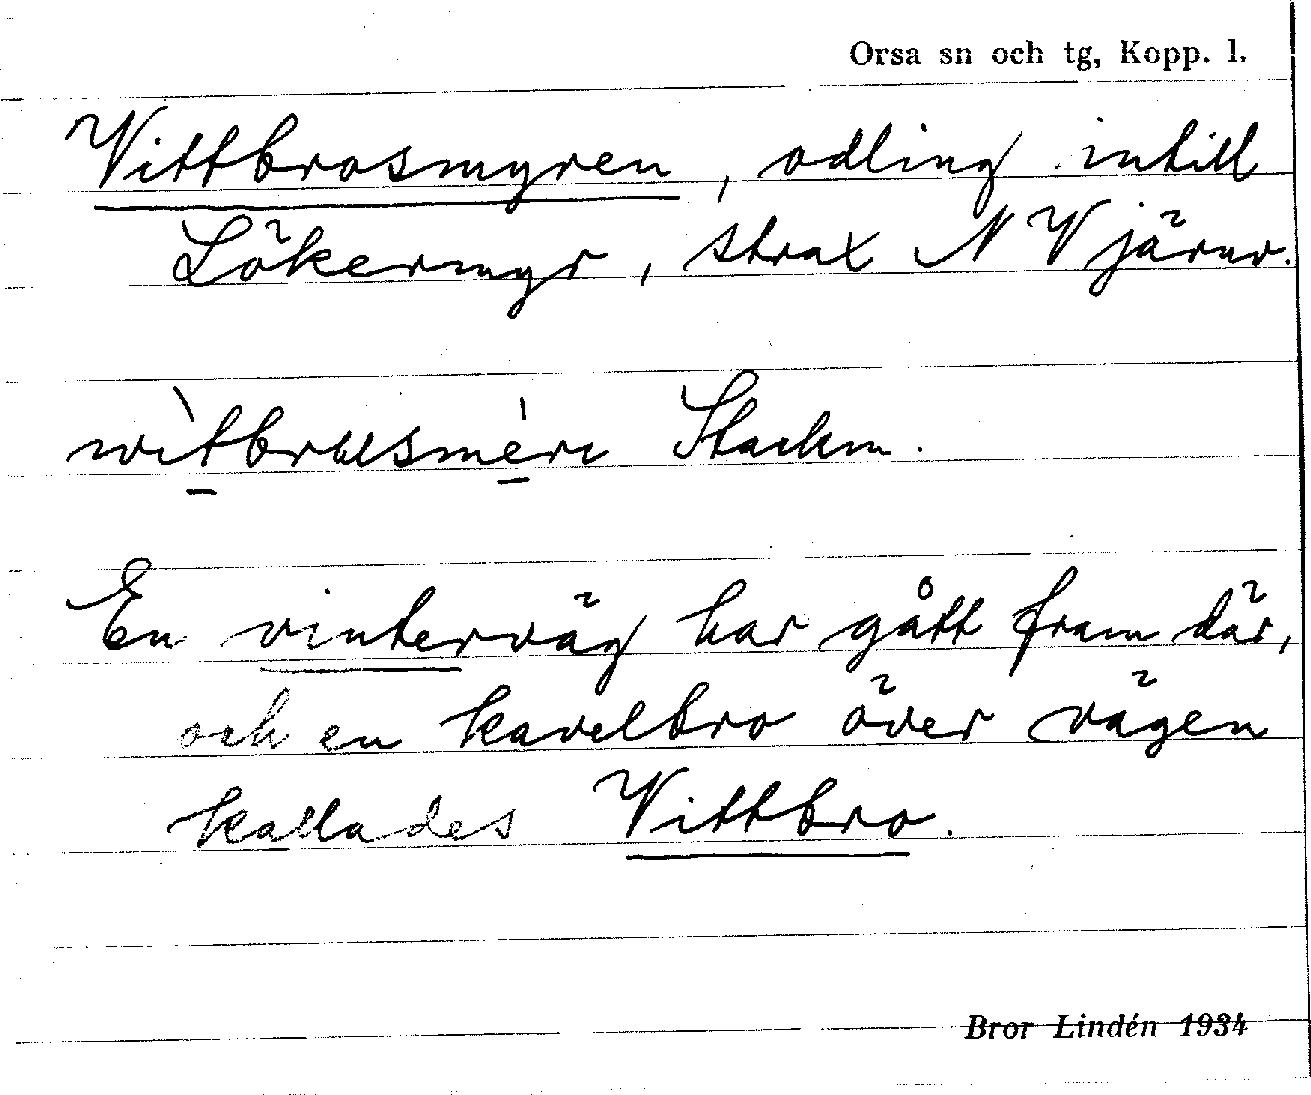 Orsa sn och tg, Kopp. l.
Vittbrosmyren, odling intill
Lökermyr, strax N Vjärnr.
wìtbrusmèri Stackm.
En vinterväg har gått fram där,
och en kavelbro över vägen
kallades Vittbro.
Bror Lindén 1934